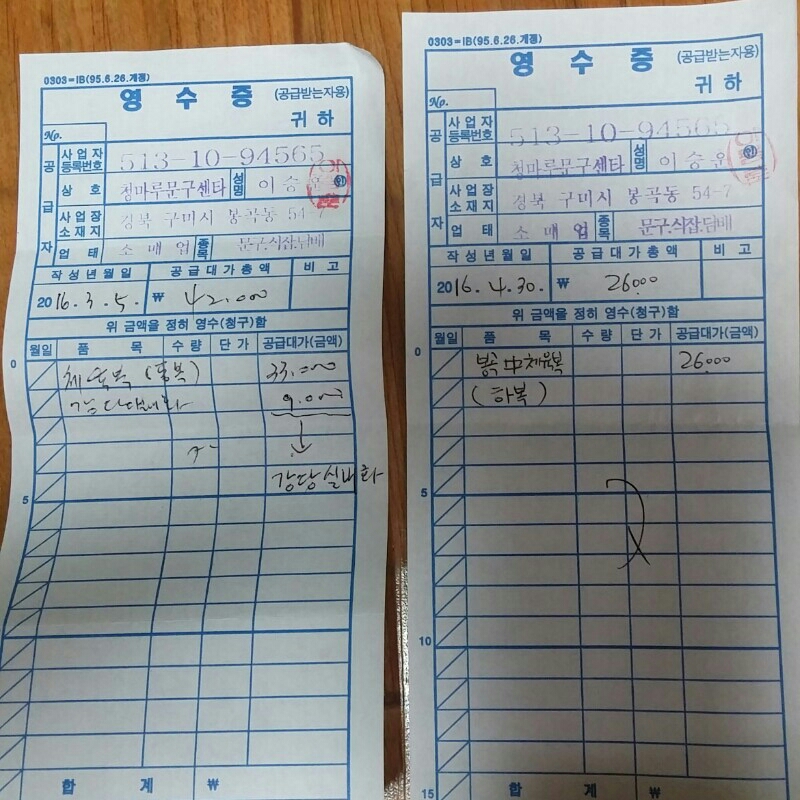 0303-IB(95.6.26.개정)
영 수 증 (공급받는자용)
No.
귀 하
공급자
사업자등록번호 513-10-94565
상 호 청마루문구센타 성명 이승운 ㊞
사업장소재지 경북 구미시 봉곡동 54-7
업 태 소매업 종목 문구.식잡.담배
작성년월일 공급대가총액 비 고
2016.3.5. ₩ 42.000
위 금액을 정히 영수(청구)함
월일 품 목 수 량 단 가 공급대가(금액)
0
체육복 (동복) 33.000
강당실내화 9.000
강당실내화
5
합 계 ₩
0303-IB(95.6.26.개정)
영 수 증 (공급받는자용)
No.
귀 하
공급자
사업자등록번호 513-10-94565
상 호 청마루문구센타 성명 이승운 ㊞
사업장소재지 경북 구미시 봉곡동 54-7
업 태 소매업 종목 문구.식잡.담배
작성년월일 공급대가총액 비 고
2016.4.30. ₩ 26000
위 금액을 정히 영수(청구)함
월일 품 목 수 량 단 가 공급대가(금액)
0
봉곡中체육복 26000
(하복)
5
10
15
합 계 ₩